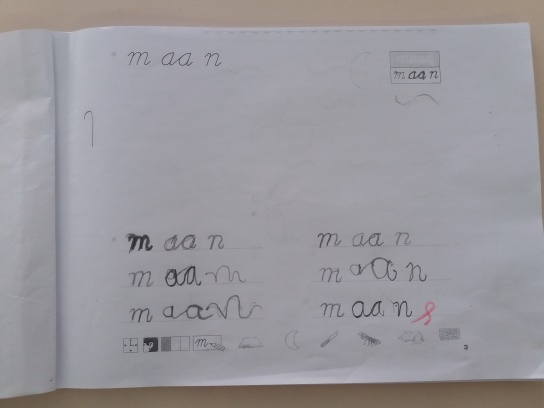 m aa n
m aa n
m aa n
m aa n
m aa m
m aa n
m aa n
m aa n
m
3